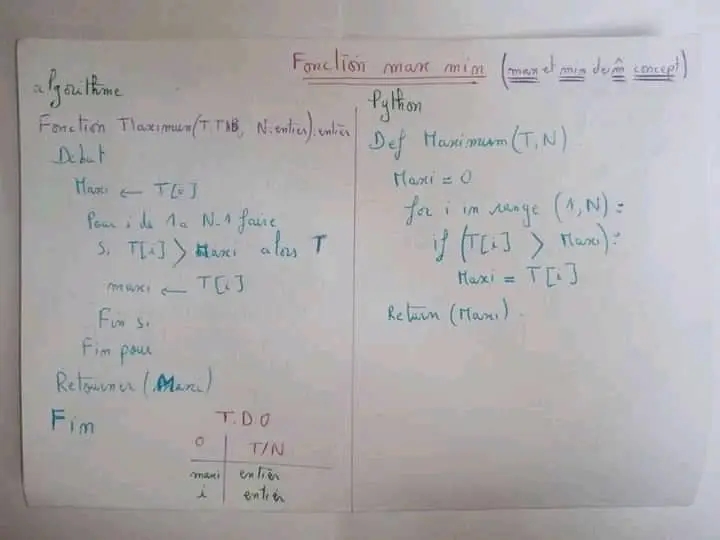 Fonction max min (max et min de m̂ concept)
algorithme
Fonction Maximum(T.TAB, N:entier):entier
Debut
Maxi ← T[0]
Pour i de 1 a N-1 faire
Si T[i] > Maxi alors T
maxi ← T[i]
Fin si
Fin pour
Retourner (Maxi)
Fin
T.D.O
O | T/N
maxi | entièr
i | entièr
Python
Def Maximum(T,N)
Maxi = 0
for i in range (1,N):
if (T[i] > Maxi):
Maxi = T[i]
Return (Maxi).